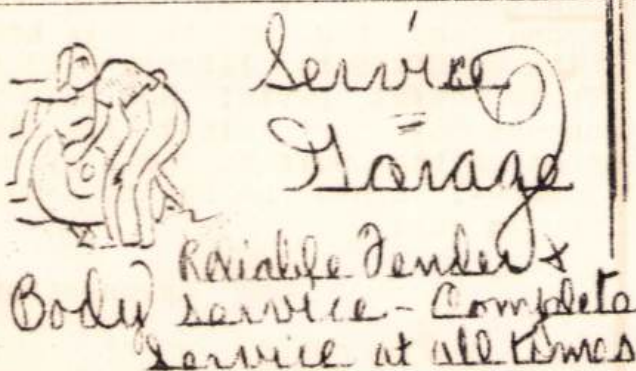 Service
Garage
Reliable Fender &
Body Service - Complete
Service at all times